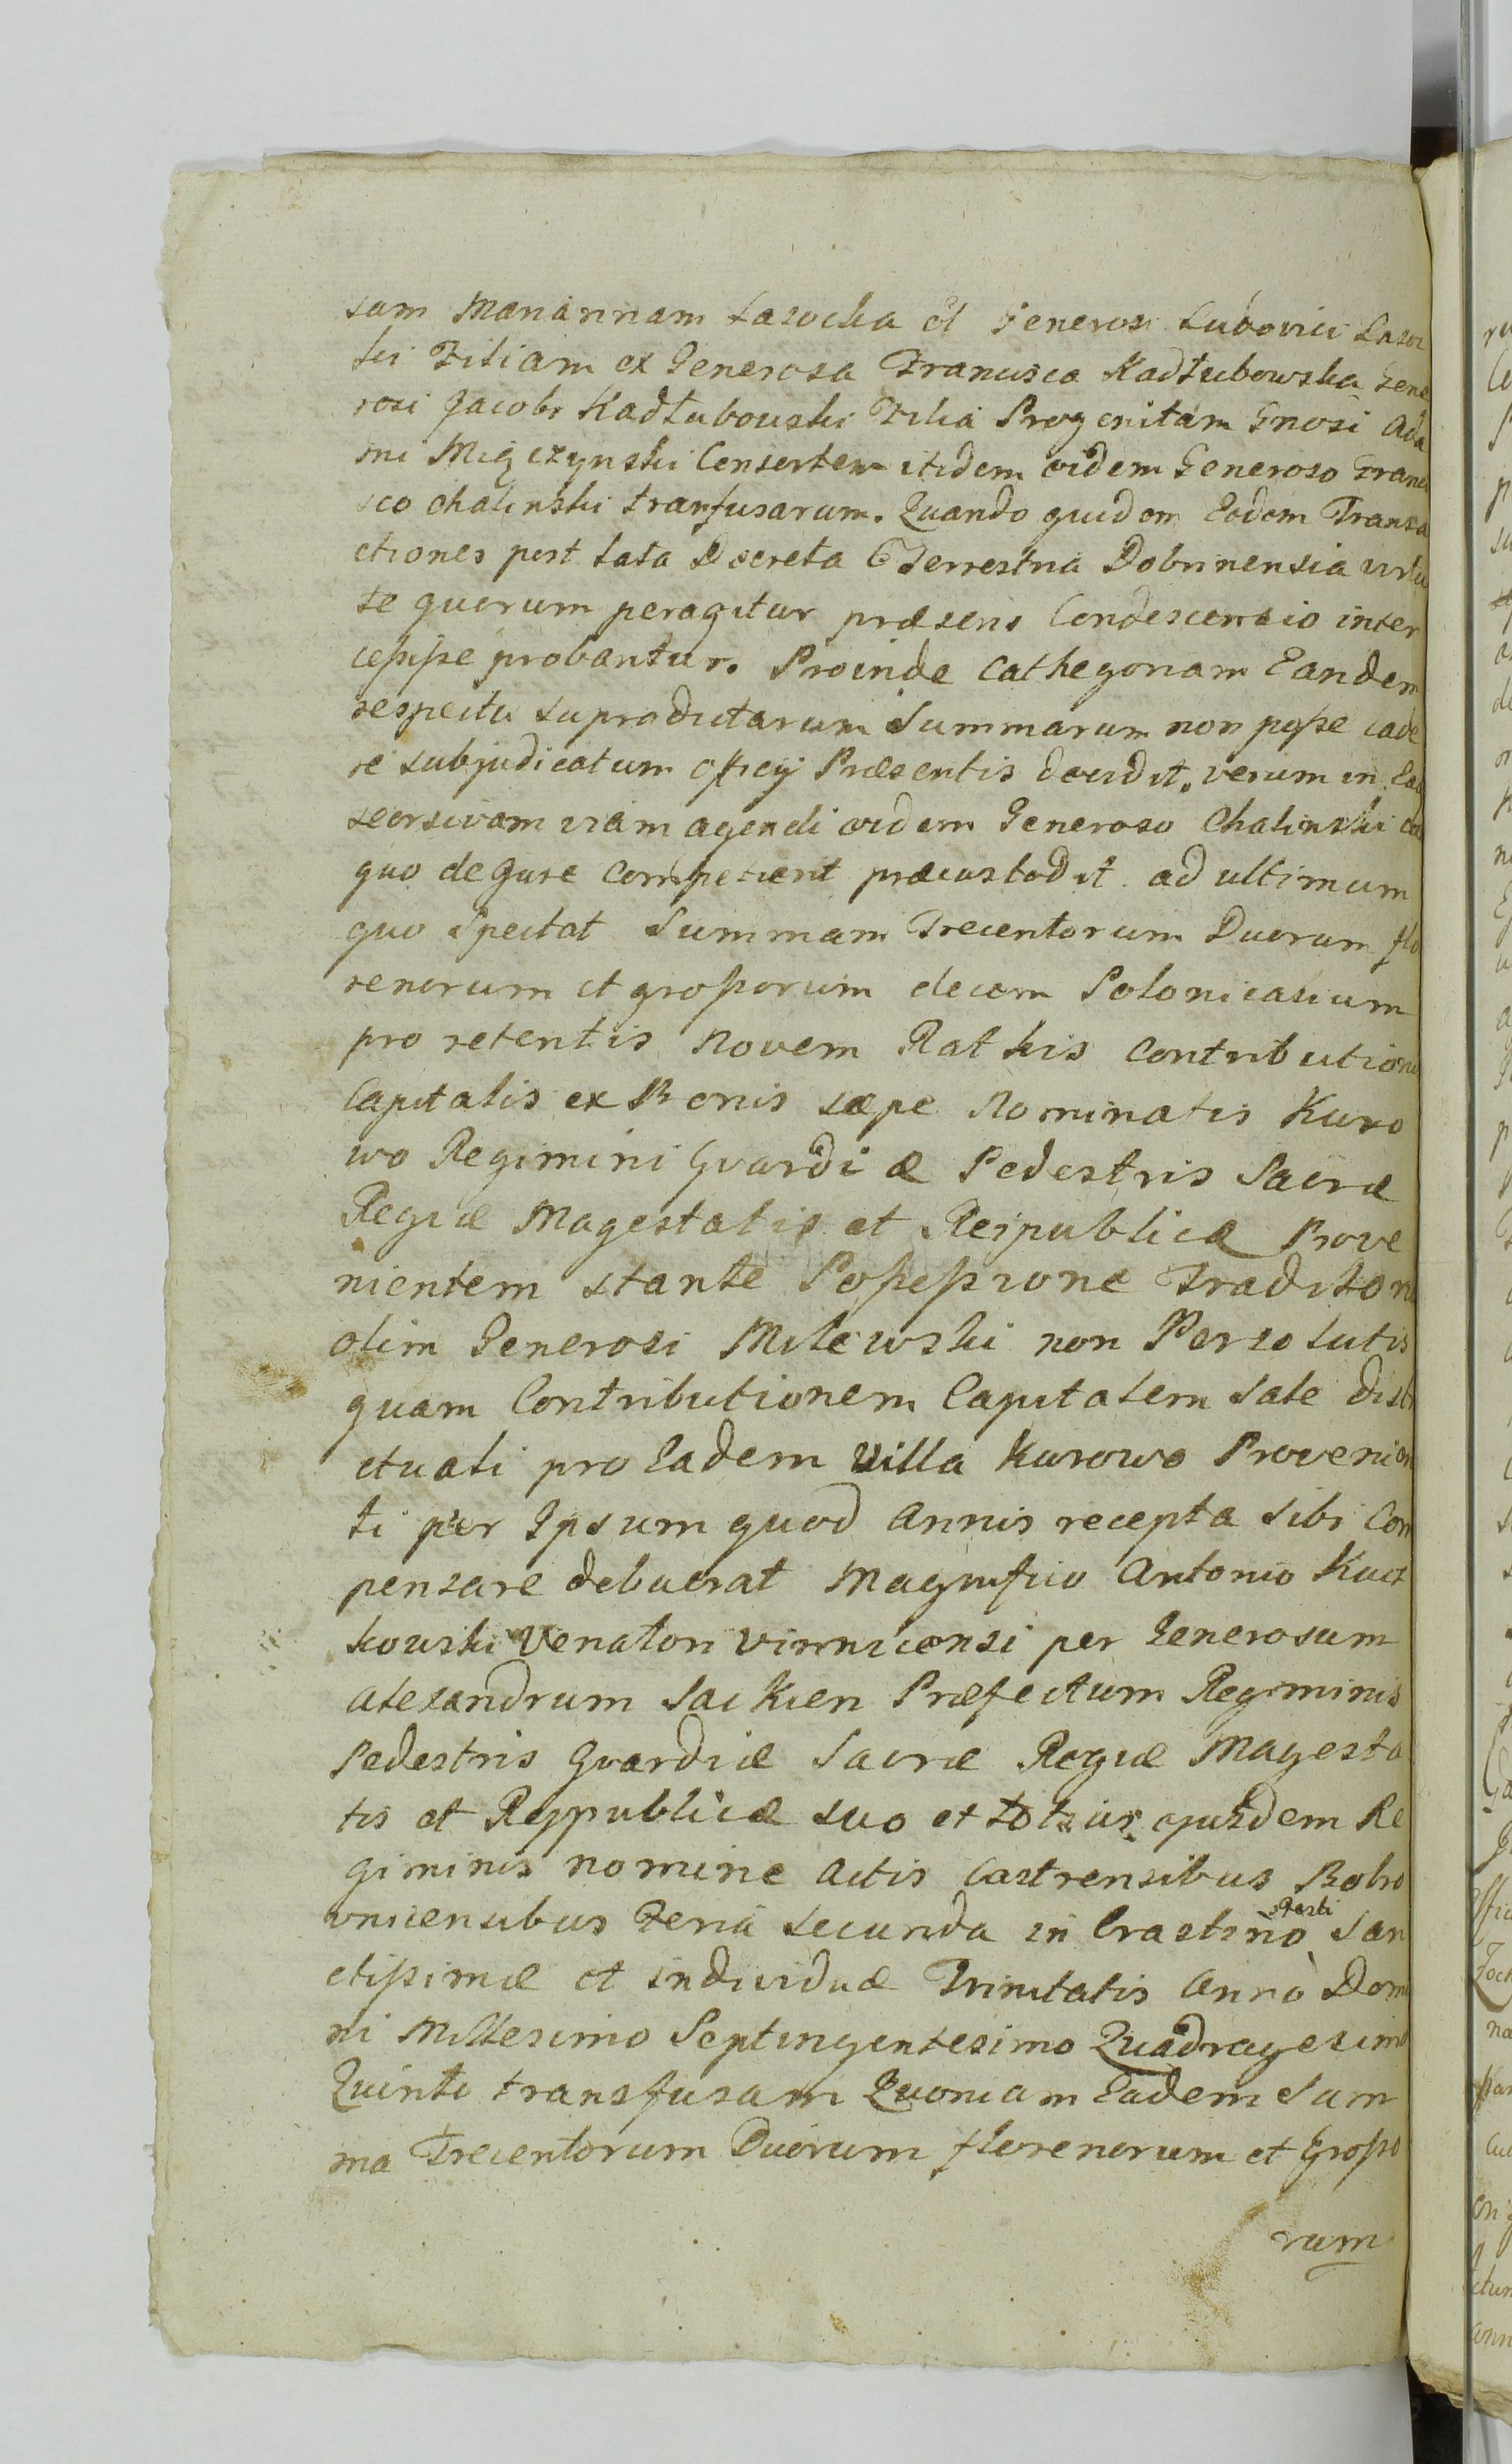 sam Mariannam Lasocka et Generosi Ludovici Lasoc
ki Filiam ex Generosa Francisca Kadłubowska Gene
rosi Jacobi Kadłubowski Filia Progenitam Gnosi Ada
mi Mięczynski Consortem itidem eidem Generoso Franci
sco Chalinski tranfusarum. Quando quidem Eædem Transa
ctiones post lata Decreta Terrestria Dobrinensia virtu
te quorum peragitur præsens Condescensio inter
cessisse probantur. Proinde Cathegoriam Eandem
respectu supradictarum Summarum non posse cade
re subjudicatum officij Præsentis decidit, verum in Ea
seorsivam viam agendi eidem Generoso Chalinski
quo de Jure competierit præcustodit ad ultimum
quo Spectat Summam Trecentorum Duorum flo
renorum et grossorum decem Polonicalium
pro retentis Novem Rathis Contributionis
Capitalis ex Bonis sæpe Nominatis Kuro
wo Regimini Gvardiæ Pedestris Sacræ
Regiæ Magestatis et Reipublicæ Prove
nientem stante Possessione Traditoria
olim Generosi Milewski non Persolutis
quam Contributionem Capitalem Sale distri
ctuali pro Eadem Villa Kurowo Provenien
ti per Ipsum quod Annis recepta sibi Com
pensare debuerat Magnifico Antonio Kucz
kowski Venatori Vinnicensi per Generosum
Alexandrum Sacken Præfectum Regiminis
Pedestris Gvardiæ Sacræ Regiæ Magesta
tis et Reppublicæ suo et totius ejusdem Re
giminis nomine Actis Castrensibus Bobro
vnicensibus Feria Secunda in Crastino Festi San
ctissimæ et individuæ Trinitatis Anno Domi
ni Millesimo Septingentesimo Quadragesimo
Quinto transfusam Quoniam Eadem Sum
ma Trecentorum Duorum florenorum et Grosso
rum